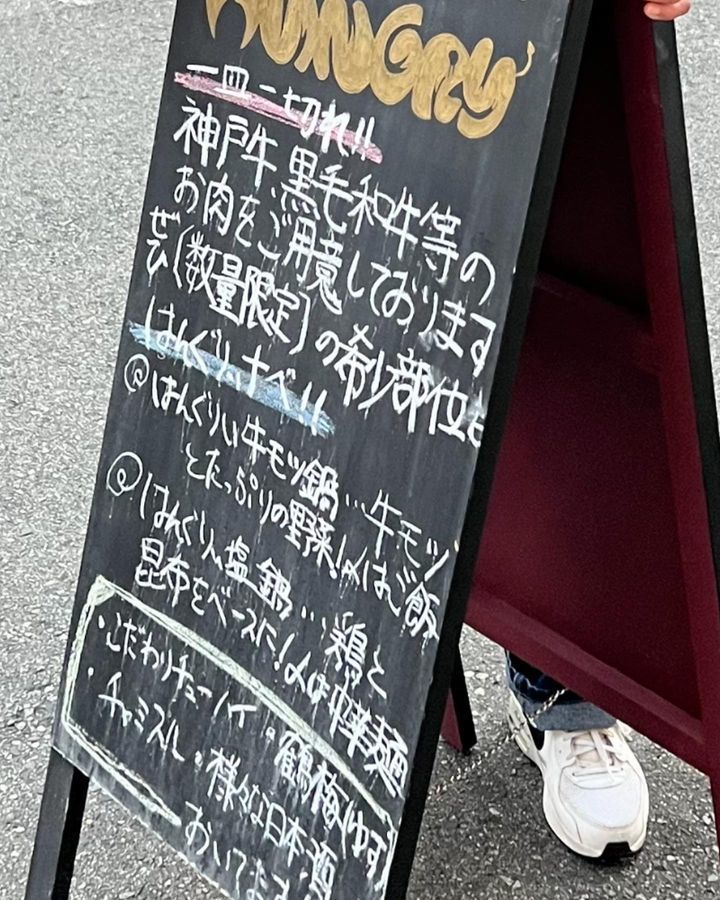 HUNGRY
一皿一切れ!!
神戸牛.黒毛和牛等の
お肉をご用意しております
ぜひ(数量限定)の希少部位も
はんぐりぃナベ!!
@はんぐりぃ牛モツ鍋…牛モツ
とたっぷりの野菜!〆はご飯
@はんぐりぃ塩鍋…鶏と
昆布をベースに!〆は中華麺
・こだわりチューハイ・鶴梅(ゆず)
・チャミスル・様々な日本酒
おいてます!